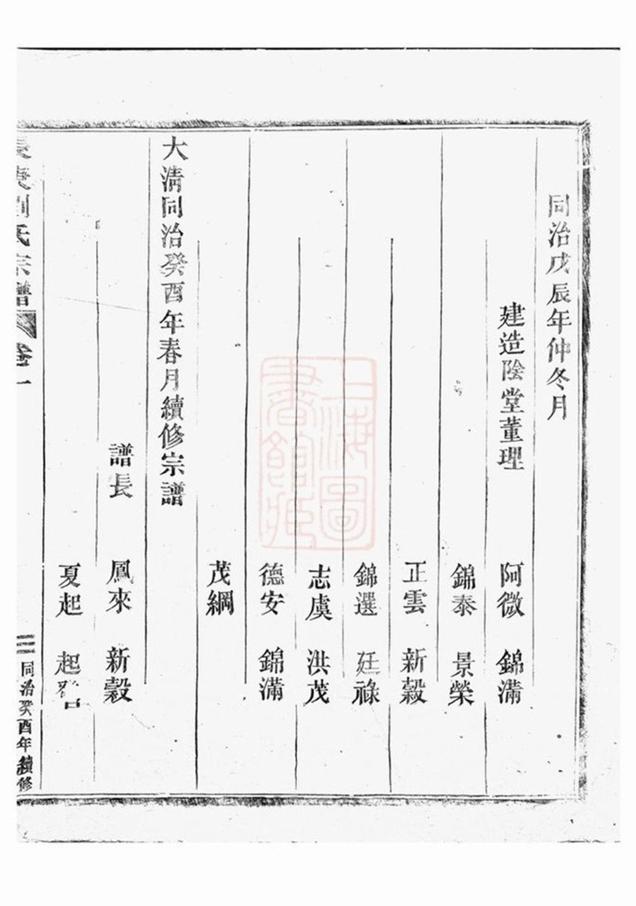 同治戊辰年仲冬月
建造陰堂董理 阿微 錦滿
錦泰 景榮
正雲 新穀
錦選 廷祿
志虞 洪茂
德安 錦滿
茂綱
大淸同治癸酉年春月續修宗譜
譜長 鳳來 新穀
夏起 起發
劉氏宗譜 卷一
二 同治癸酉年續修
上海圖書館藏